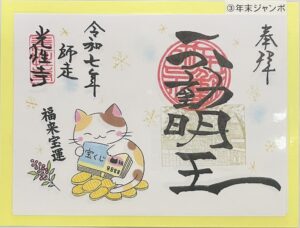 ③年末ジャンボ
奉拝
不動明王
令和七年
師走
福来宝運
宝くじ